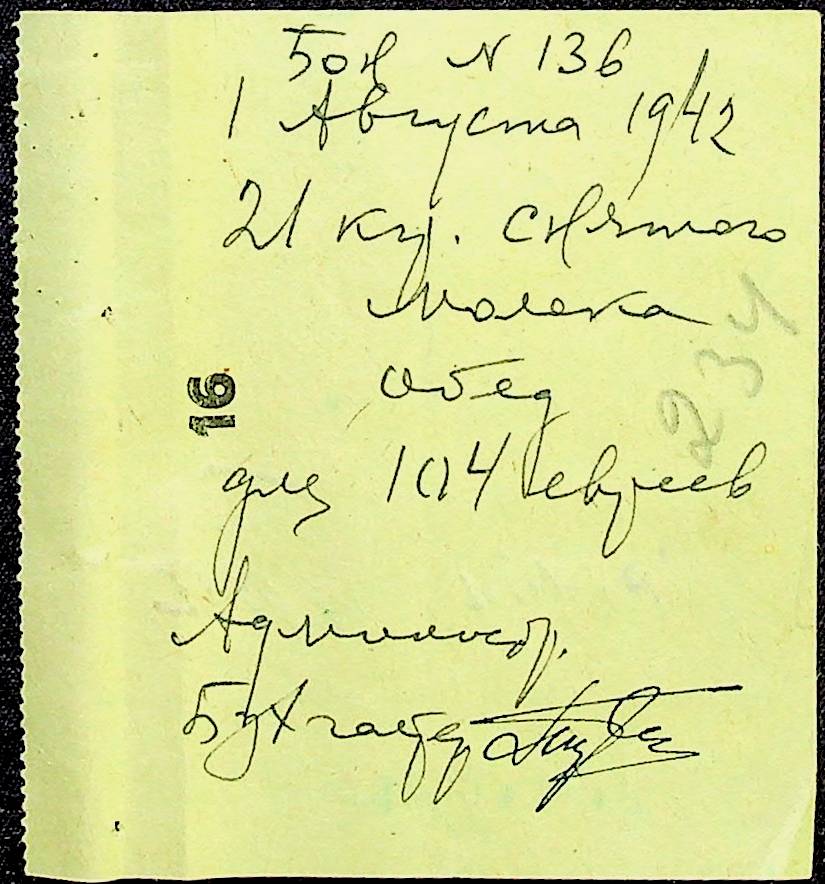 Бон N 136
1 Августа 1942
21 кгр. снятого
молока
обед
для 104 евреев
Администр.
Бухгалтер
16
234